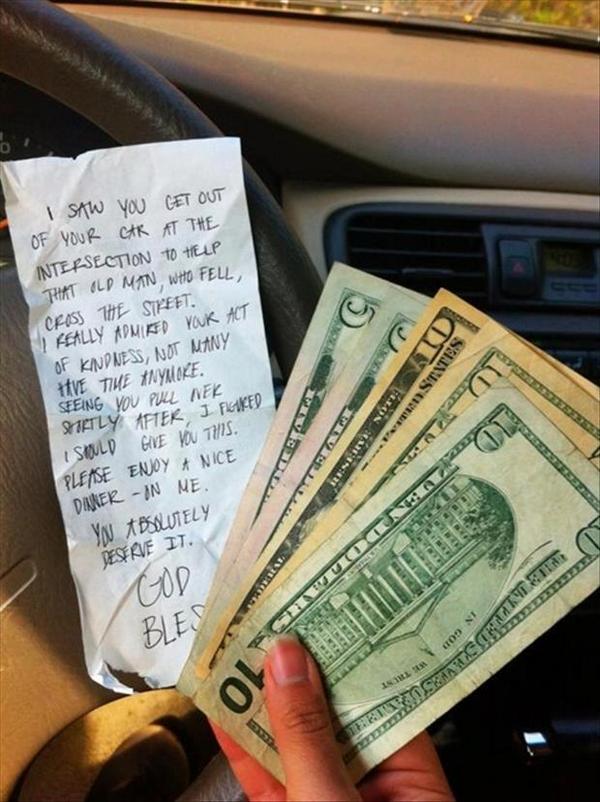 I SAW YOU GET OUT
OF YOUR CAR AT THE
INTERSECTION TO HELP
THAT OLD MAN, WHO FELL,
CROSS THE STREET.
I REALLY ADMIRED YOUR ACT
OF KINDNESS, NOT MANY
HAVE TIME ANYMORE.
SEEING YOU PULL OVER
SHORTLY AFTER, I FIGURED
I SHOULD GIVE YOU THIS.
PLEASE ENJOY A NICE
DINNER - ON ME.
YOU ABSOLUTELY
DESERVE IT.
GOD
BLES
5
5
10
FEDERAL RESERVE NOTE
STATES
THE UNITED STATES OF AMERICA
IN GOD
WE TRUST
10